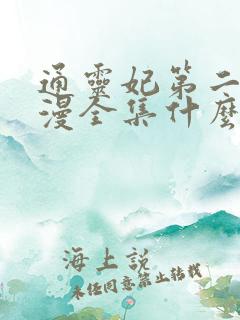 通靈妃第二
漫全集什麼
海上說
未經同意禁止轉載